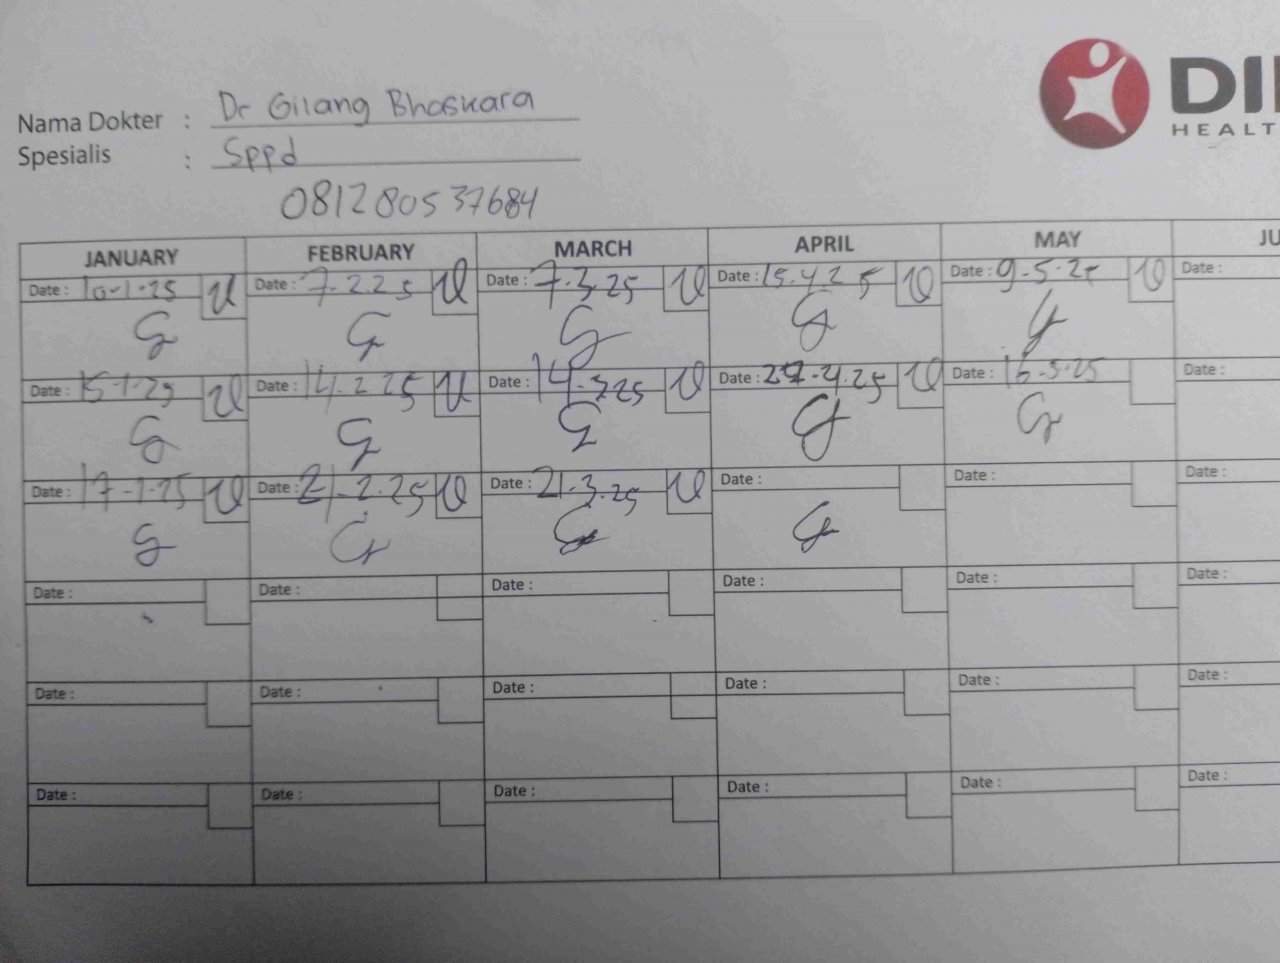 Nama Dokter : Dr Gilang Bhaskara
Spesialis : Sppd
081280537684
DI
HEALT
JANUARY FEBRUARY MARCH APRIL MAY JU
Date : 10-1-25 Date : 7-2.25 Date : 7.3.25 Date : 15.4.25 Date : 9-5-25 Date :
Date : 15-1-25 Date : 14.2.25 Date : 14.3.25 Date : 27-4.25 Date : 16-5-25 Date :
Date : 17-1-25 Date : 21-2.25 Date : 21.3.25 Date : Date : Date :
Date : Date : Date : Date : Date : Date :
Date : Date : Date : Date : Date : Date :
Date : Date : Date : Date : Date : Date :